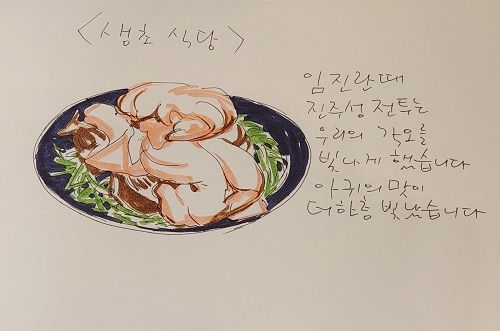 <생초 식당>
임진란때
진주성 전투는
우리의 각오를
빛나게 했습니다
아귀의 맛이
더하층 빛났습니다